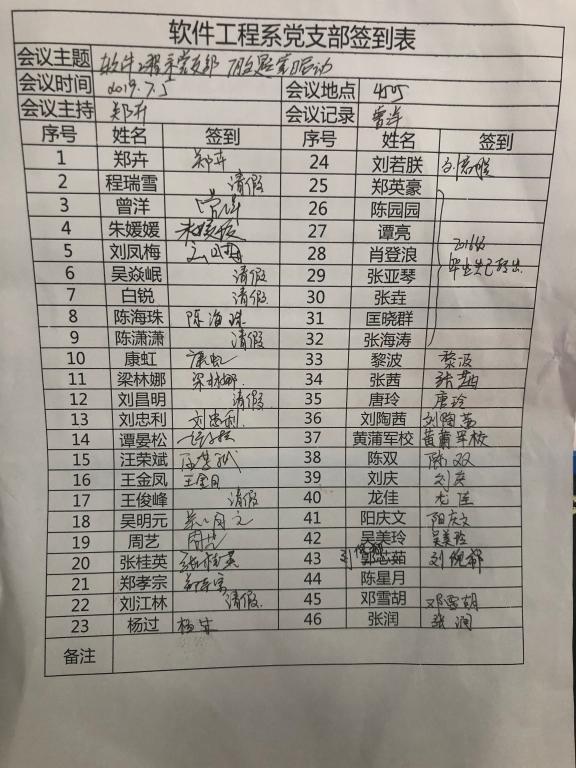 软件工程系党支部签到表
会议主题 软件工程系党支部
会议时间 2019.7.5 会议地点 405
会议主持 郑卉 会议记录 曾洋
序号 姓名 签到 序号 姓名 签到
1 郑卉 郑卉 24 刘若朕 刘若朕
2 程瑞雪 请假 25 郑英豪
3 曾洋 曾洋 26 陈园园
4 朱媛媛 朱媛媛 27 谭亮
5 刘凤梅 28 肖登浪
6 吴焱岷 请假 29 张亚琴
7 白锐 请假 30 张垚
8 陈海珠 陈海珠 31 匡晓群
9 陈潇潇 请假 32 张海涛
2016级
毕业生已转出
10 康虹 康虹 33 黎波 黎波
11 梁林娜 梁林娜 34 张茜 张茜
12 刘昌明 请假 35 唐玲 唐玲
13 刘忠利 刘忠利 36 刘陶茜 刘陶茜
14 谭晏松 37 黄蒲军校 黄蒲军校
15 汪荣斌 38 陈双 陈双
16 王金凤 39 刘庆
17 王俊峰 请假 40 龙佳 龙佳
18 吴明元 吴明元 41 阳庆文 阳庆文
19 周艺 周艺 42 吴美玲 吴美玲
20 张桂英 张桂英 43 郭芯茹
21 郑孝宗 郑孝宗 44 陈星月
22 刘江林 请假 45 邓雪胡 邓雪胡
23 杨过 46 张润 张润
备注